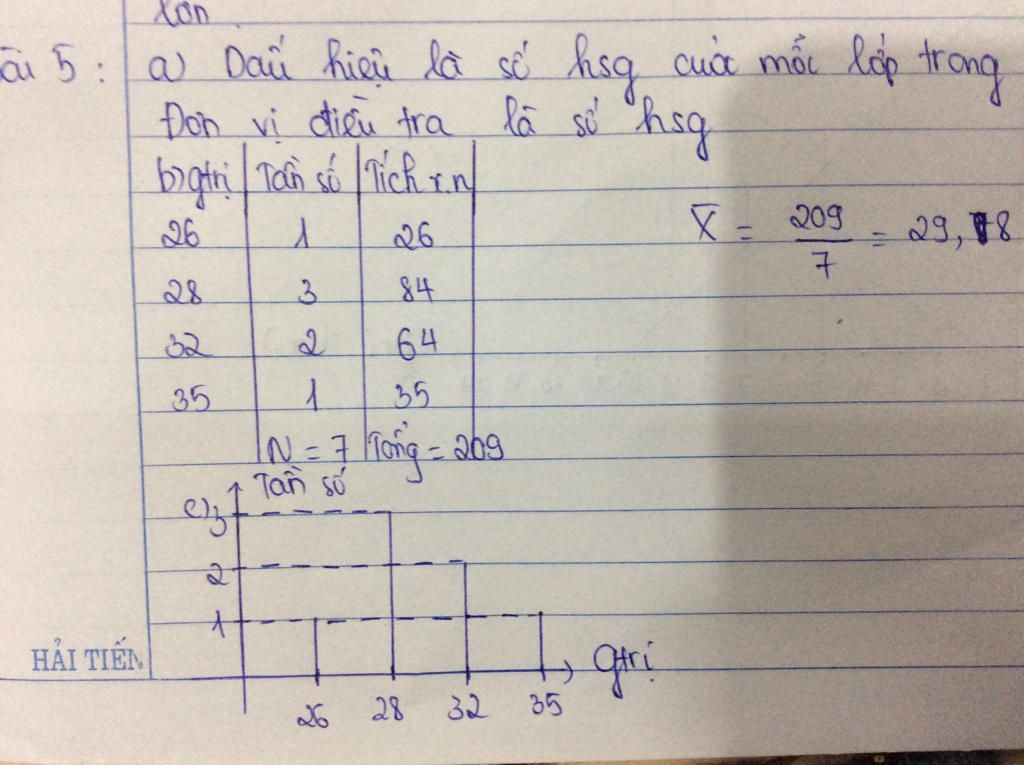 lớn.
ài 5: a) Dấu hiệu là số hsg cuả mỗi lớp trong
Đơn vị điều tra là số hsg
b) gtrị Tần số Tích x.n
26 1 26
28 3 84
32 2 64
35 1 35
N = 7 Tổng = 209
X̄ = 209/7 = 29,8
Tần số
c) 3
2
1
26 28 32 35 gtrị
HẢI TIẾN